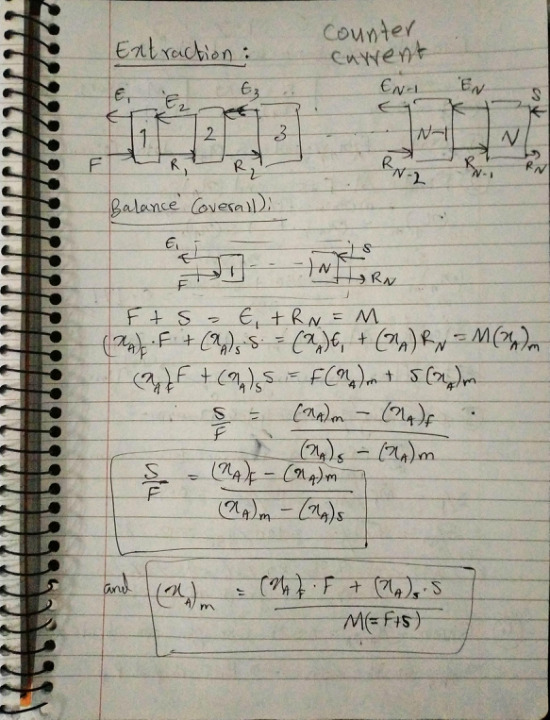 Extraction :
Counter
current
E₁ E₂ E₃ E_{N-1} E_N S
1 2 3 N-1 N
F R₁ R₂ R_{N-2} R_{N-1} R_N
Balance (overall):
E₁ S
1 N
F R_N
F + S = E₁ + R_N = M
(x_A)_F · F + (x_A)_S · S = (x_A)E₁ + (x_A) R_N = M(x_A)_m
(x_A)_F F + (x_A)_S S = F(x_A)_m + S(x_A)_m
S/F = ((x_A)_m - (x_A)_f) / ((x_A)_S - (x_A)_m)
S/F = ((x_A)_F - (x_A)_m) / ((x_A)_m - (x_A)_S)
and (x_A)_m = ((x_A)_f · F + (x_A)_S · S) / M(=F+S)